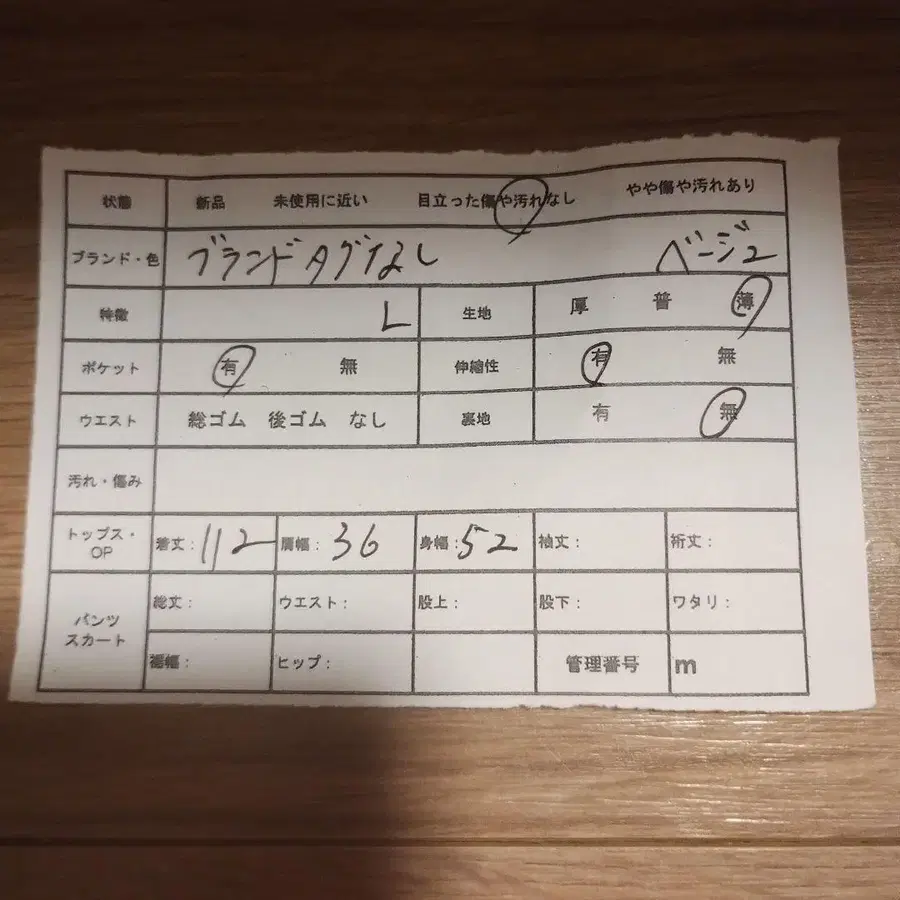 状態 新品 未使用に近い 目立った傷や汚れなし やや傷や汚れあり
ブランド・色 ブランドタグなし ベージュ
特徴 L 生地 厚 普 薄
ポケット 有 無 伸縮性 有 無
ウエスト 総ゴム 後ゴム なし 裏地 有 無
汚れ・傷み
トップス・OP 着丈:112 肩幅:36 身幅:52 袖丈: 裄丈:
パンツ スカート 総丈: ウエスト: 股上: 股下: ワタリ:
裾幅: ヒップ: 管理番号 m